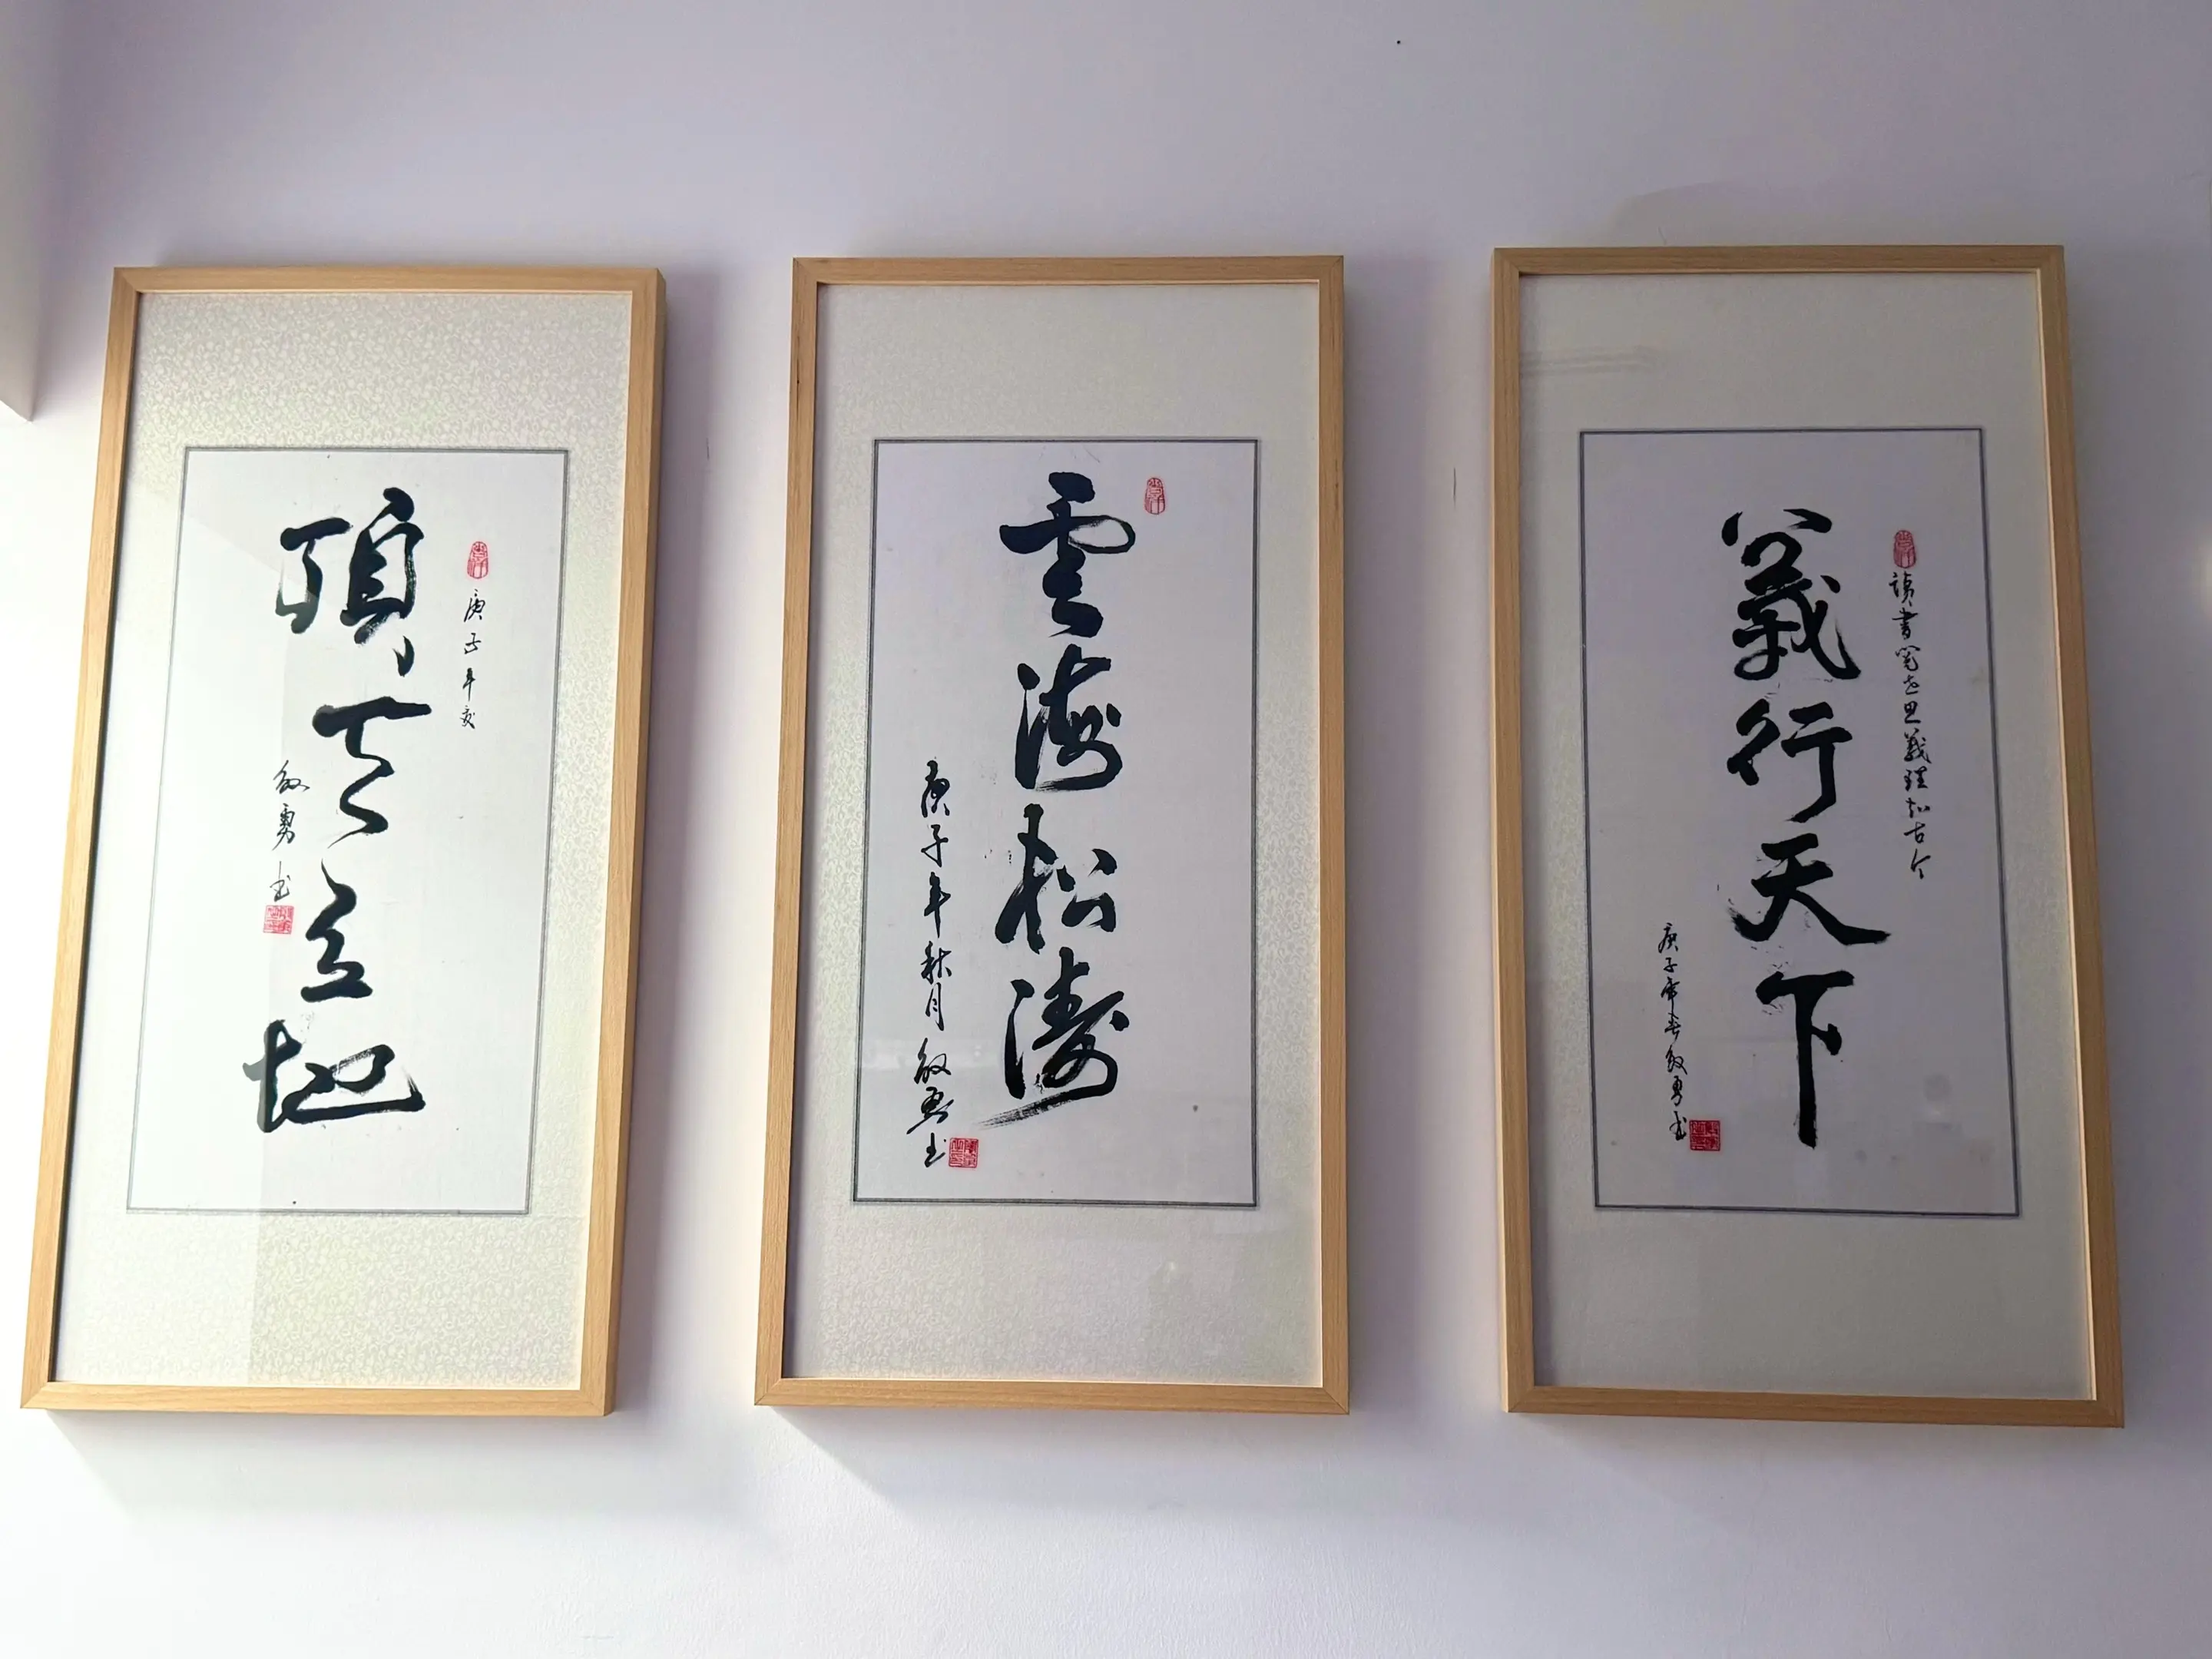 頂天立地
庚子年夏
敏勇书
雲海松涛
庚子年秋月敏勇书
義行天下
读书笔在思義理知古今
庚子年春敏勇书